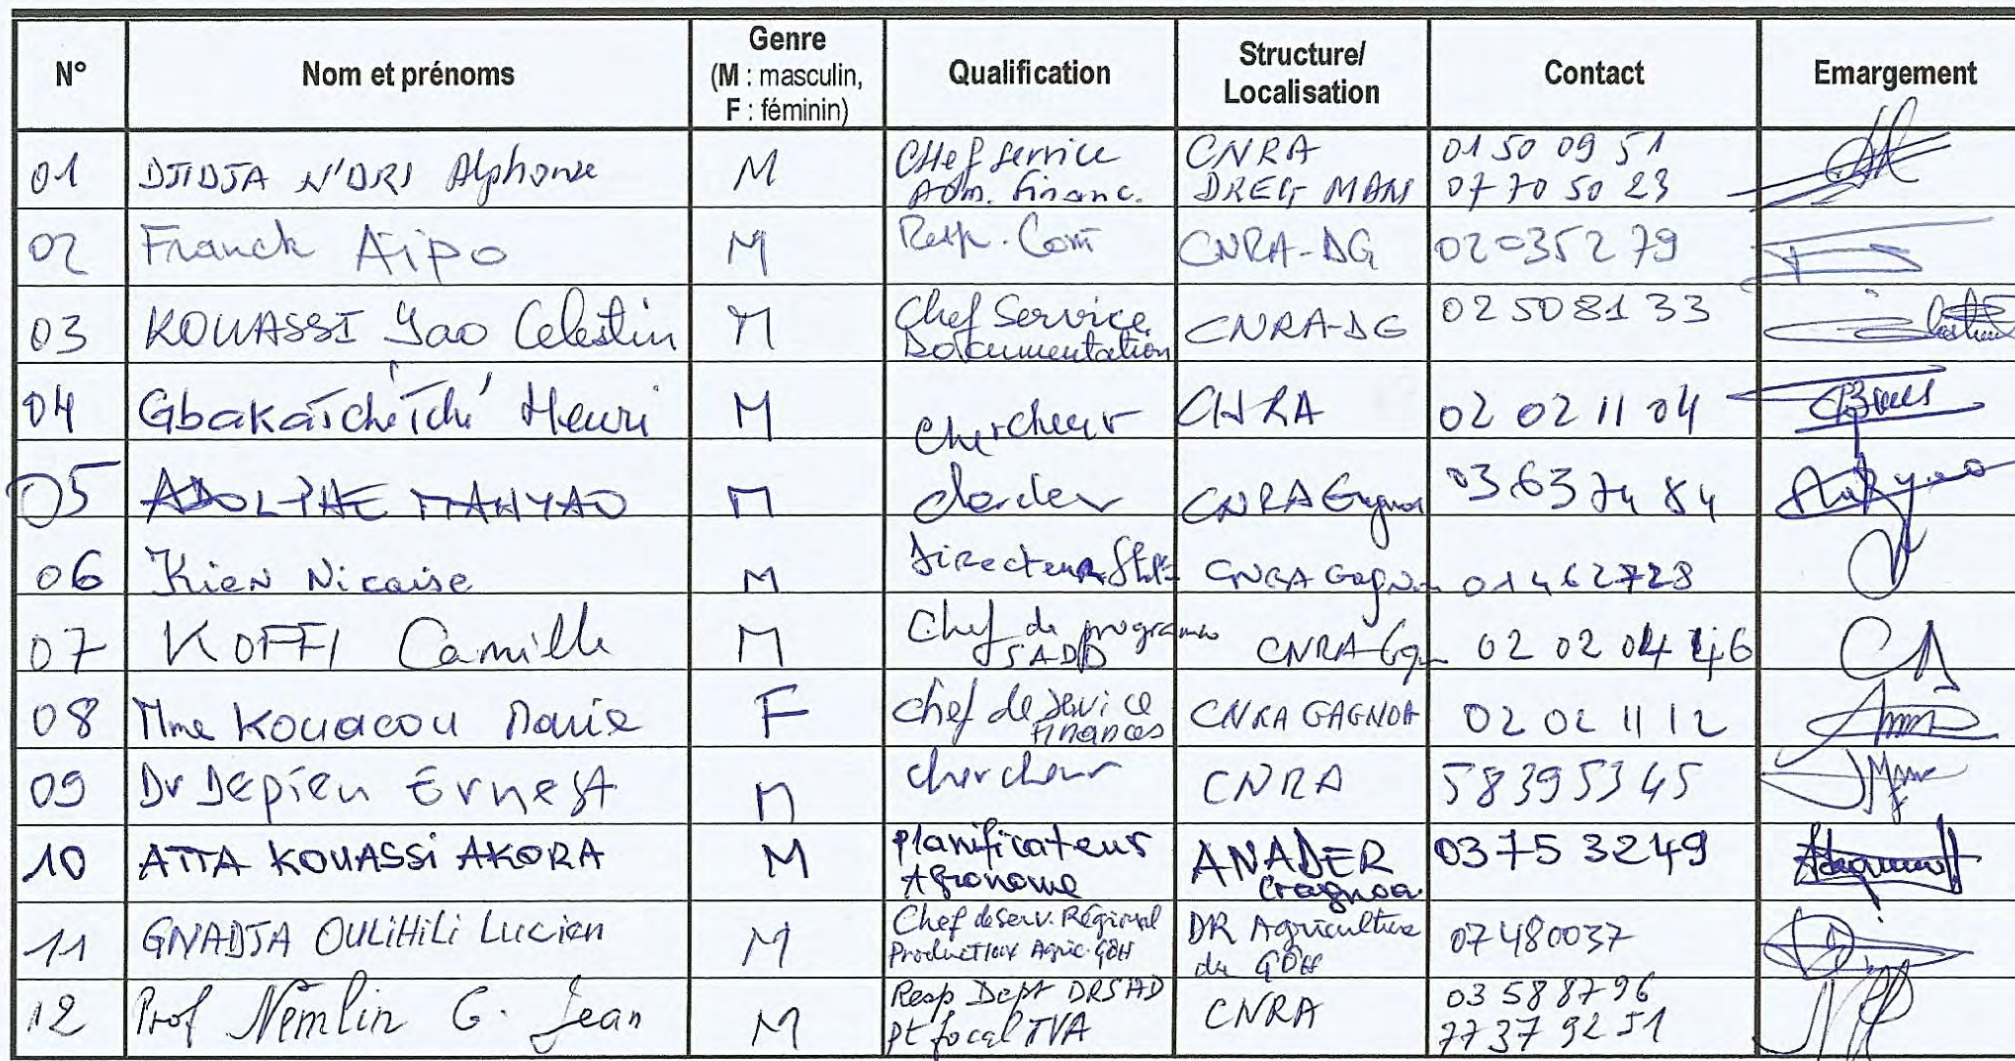 N° Nom et prénoms Genre (M : masculin, F : féminin) Qualification Structure/ Localisation Contact Emargement
01 DJIDJA N'DRI Alphonse M Chef service Adm. Financ. CNRA DREG MAN 01 50 09 51 07 70 50 23
02 Franck Aipo M Resp. Com CNRA-DG 02035279
03 KOUASSI Yao Celestin M Chef Service Documentation CNRA-DG 02508133
04 Henri M Chercheur CNRA 02 02 11 04
05 ADOLPHE MAHYAO M CNRA Gagnoa 03 63 74 84
06 Kien Nicaise M Directeur CNRA Gagnoa 01462728
07 KOFFI Camille M Chef de programme SADD CNRA 02 02 04 46
08 Mme Kouacou Marie F Chef de service Finances CNRA GAGNOA 02 02 11 12
09 Dr Depieu Ernest M chercheur CNRA 58395345
10 ATTA KOUASSI AKORA M Planificateur Agronome ANADER Gagnoa 03753249
11 GNADJA OULIHILI Lucien M Chef de Serv. Régional Production Agric. GÔH DR Agriculture du GÔH 07480037
12 Prof Nemlin G. Jean M Resp Dept DRSAD Pt focal TVA CNRA 03 58 87 96 77 37 92 51